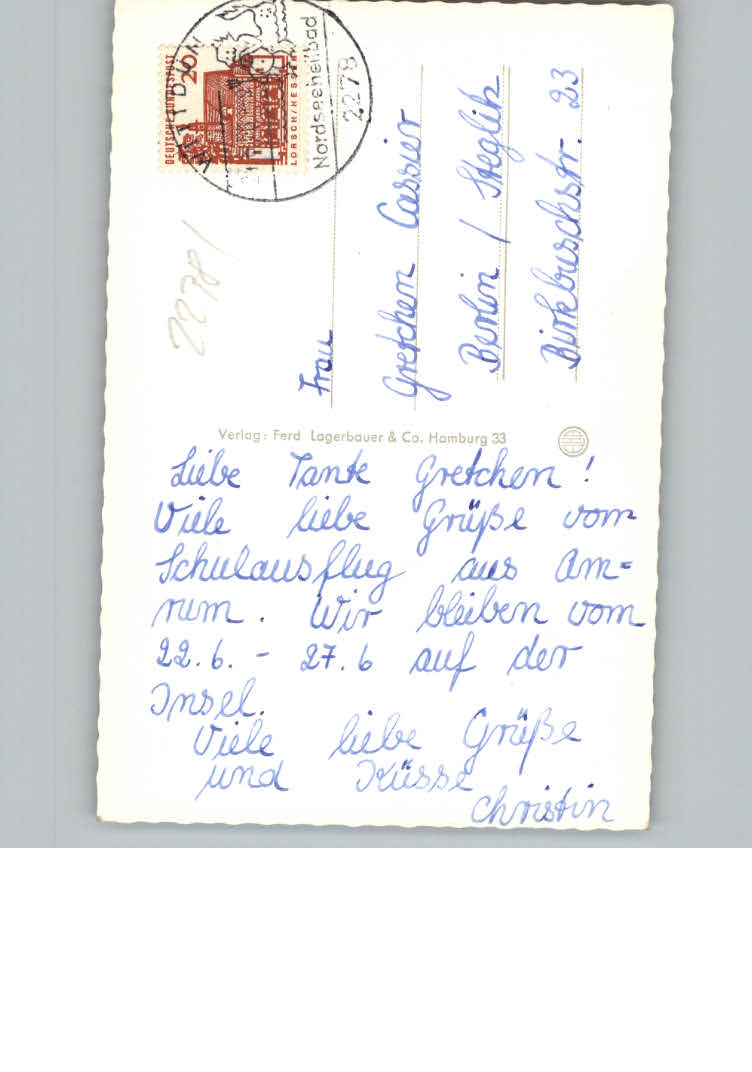 DEUTSCHE BUNDESPOST
20
LORSCH/HESSEN
WITTDÜN
Nordseeheilbad
2278
2278/
Frau
Gretchen Cassier
Berlin / Steglik
Birkbuschstr. 23
Verlag: Ferd. Lagerbauer & Co. Hamburg 33
Liebe Tante Gretchen!
Viele liebe Grüße vom
Schulausflug aus Am=
rum. Wir bleiben vom
22.6. - 27.6 auf der
Insel.
Viele liebe Grüße
und Küsse
Christin